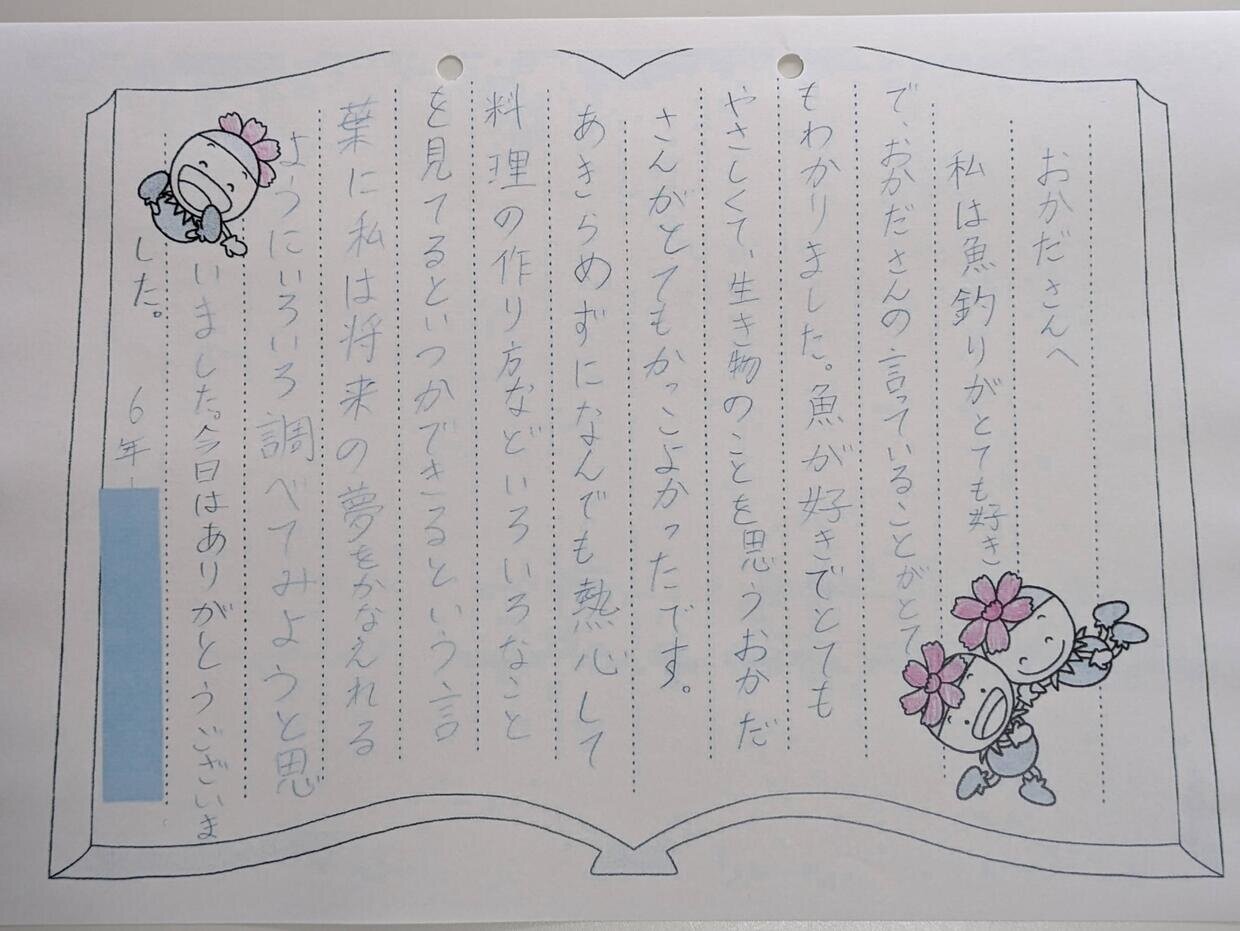 おかださんへ
私は魚釣りがとても好き
で、おかださんの言っていることがとて
もわかりました。魚が好きでとても
やさしくて、生き物のことを思うおかだ
さんがとてもかっこよかったです。
あきらめずになんでも熱心して
料理の作り方などいろいろなこと
を見てるといつかできるという言
葉に私は将来の夢をかなえれる
ようにいろいろ調べてみようと思
いました。今日はありがとうございま
した。
6年